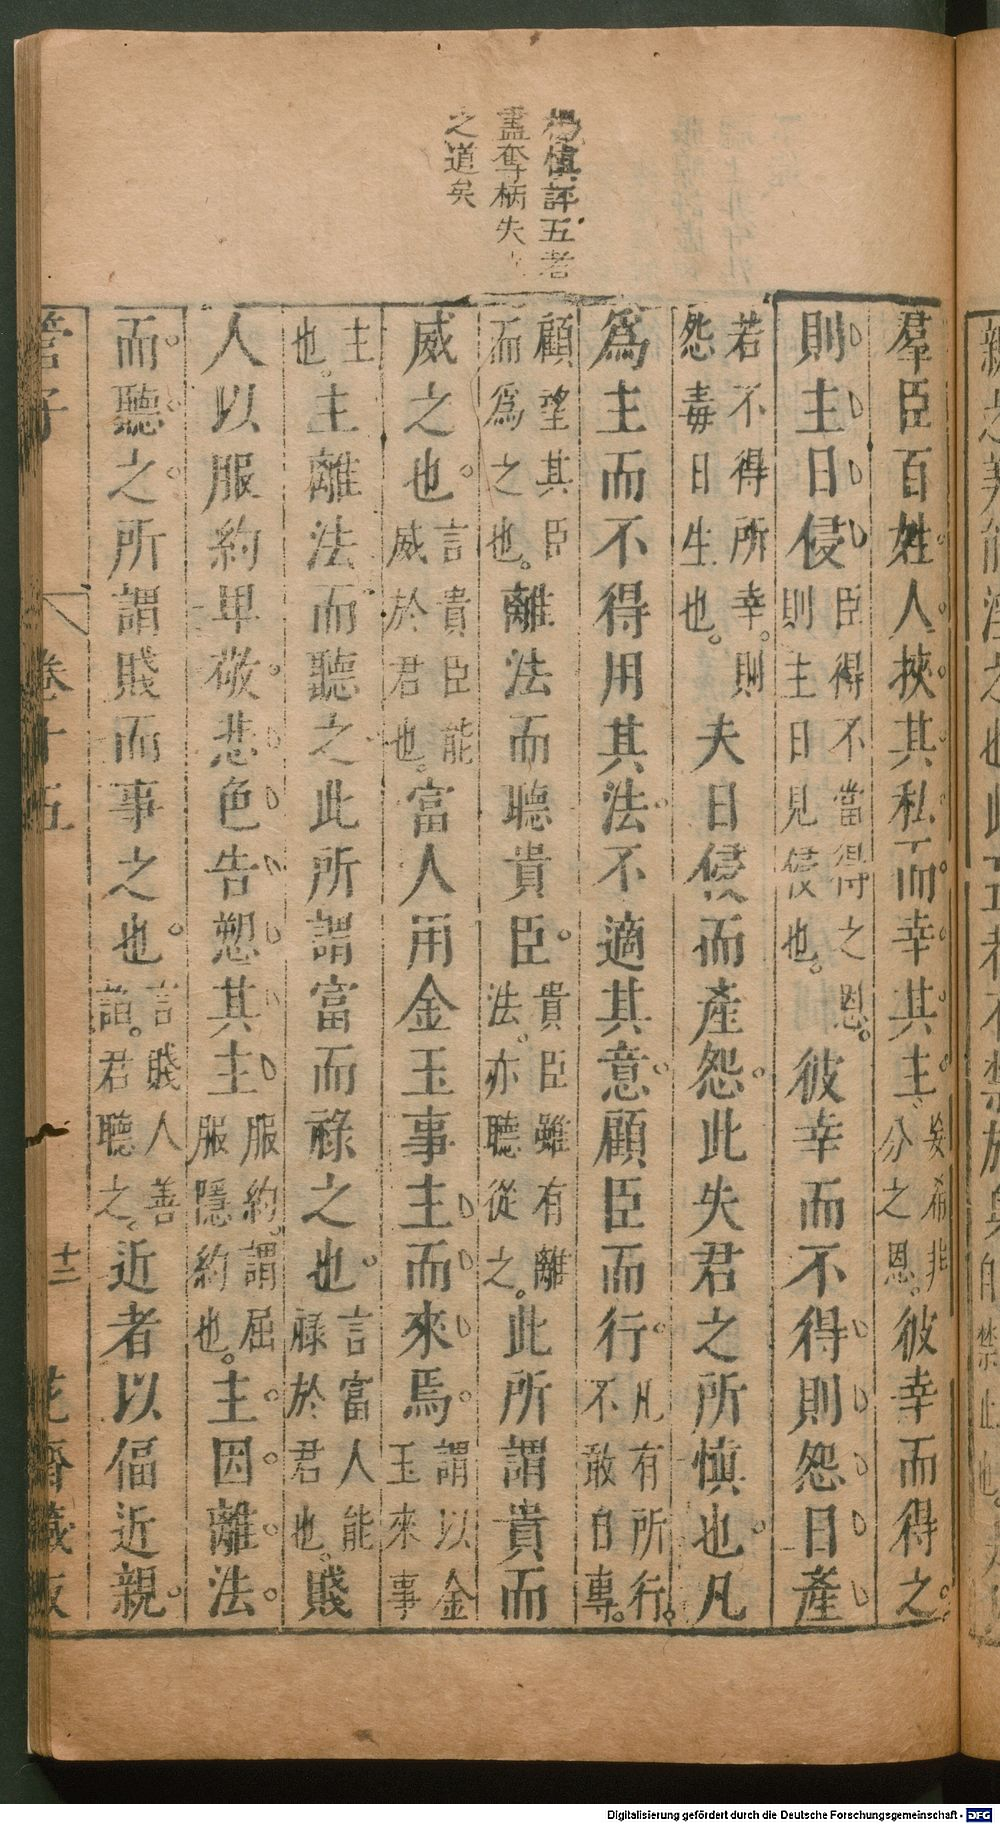 楊慎評五者
盡奪柄失
之道矣
羣臣百姓人挾其私而幸其主矣希非分之恩彼幸而得之
則主日侵臣得不當得之恩則主日見侵也彼幸而不得則怨日產
若不得所幸則怨毒日生也夫日侵而產怨此失君之所慎也凡
爲主而不得用其法不適其意顧臣而行凡有所行不敢自專
顧望其臣而爲之也離法而聽貴臣貴臣雖有離法亦聽從之此所謂貴而
威之也言貴臣能威於君也富人用金玉事主而來焉謂以金玉來事
主也主離法而聽之此所謂富而祿之也言富人能祿於君也賤
人以服約卑敬悲色告愬其主服約謂屈服隱約也主因離法
而聽之所謂賤而事之也言賤人善諂君聽之近者以偪近親
管子
卷十五
十二
花齋藏板
Digitalisierung gefördert durch die Deutsche Forschungsgemeinschaft - DFG